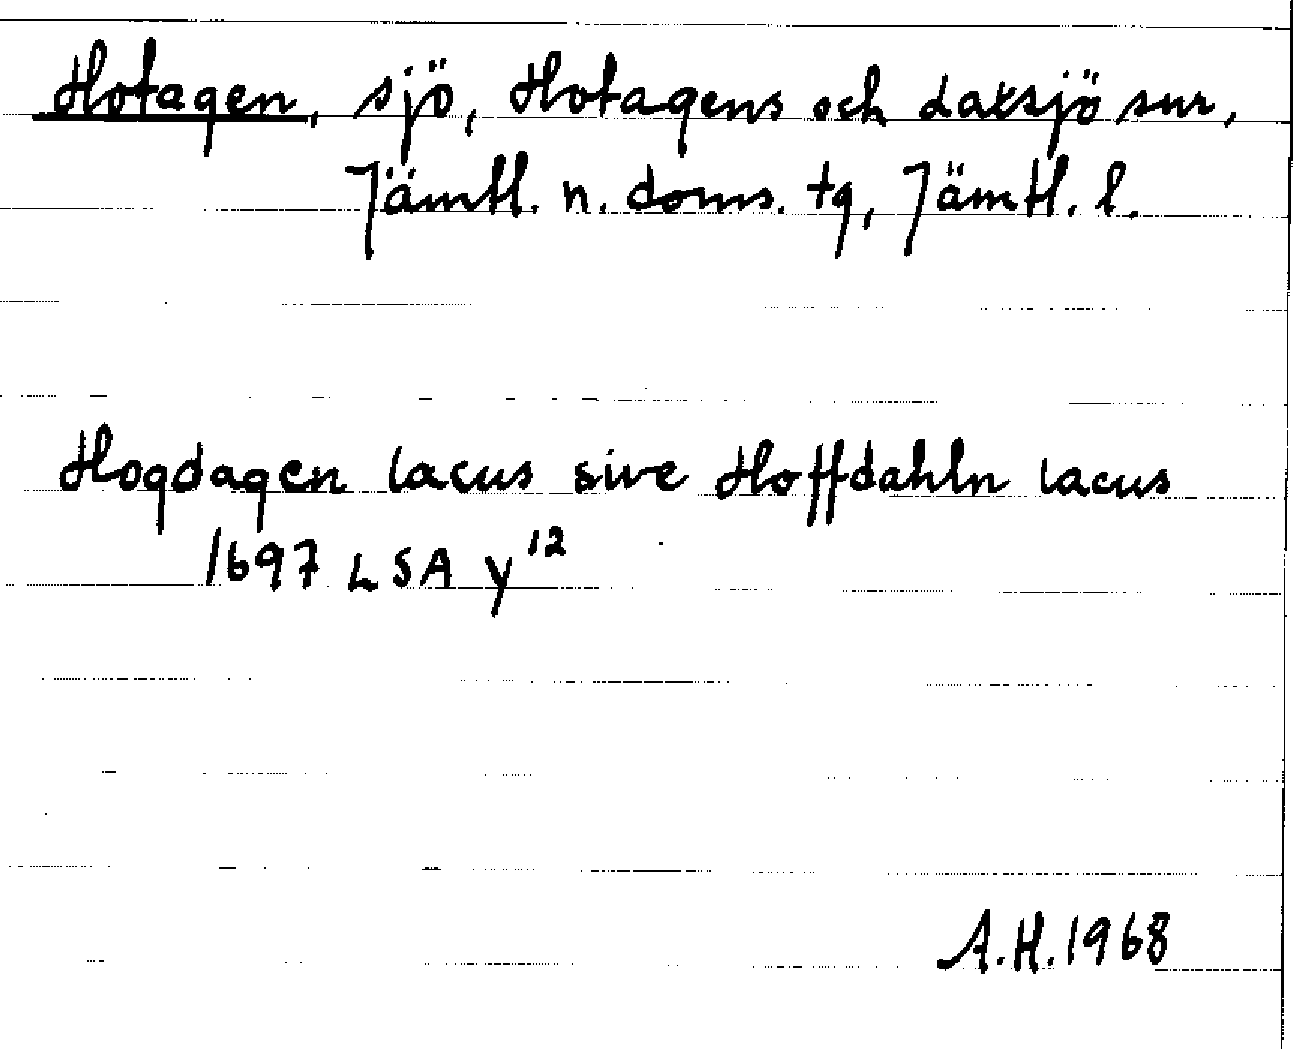 Hotagen, sjö, Hotagens och Laxsjö snr,
Jämtl. n. doms. tg, Jämtl. l.
Hogdagen lacus sive Hoffdahln lacus
1697 LSA Y 12
A.H. 1968